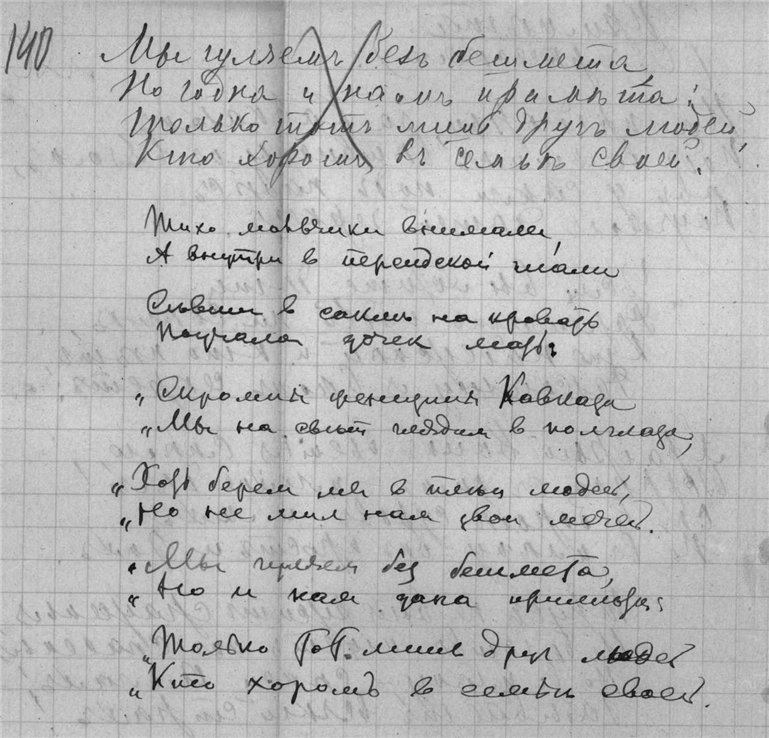 140
Мы гуляемъ безъ бешмета,
Но годна и намъ примѣта:
Только тотъ милъ другъ людей,
Кто хорошъ въ семьѣ своей.
Тихо мальчики внимали,
А внутри в персидской шали
Сѣвши в сакле на кровать
Поучала дочек мать:
„Скромны женщины Кавказа
„Мы на свѣт глядим в полглаза,
„Хоть берем мы в плѣн людей,
„Но не мил нам звон мечей.
„Мы гуляем без бешмета,
„Но и нам дана примѣта:
„Только тот милъ друг людей
„Кто хорошъ в семьѣ своей.